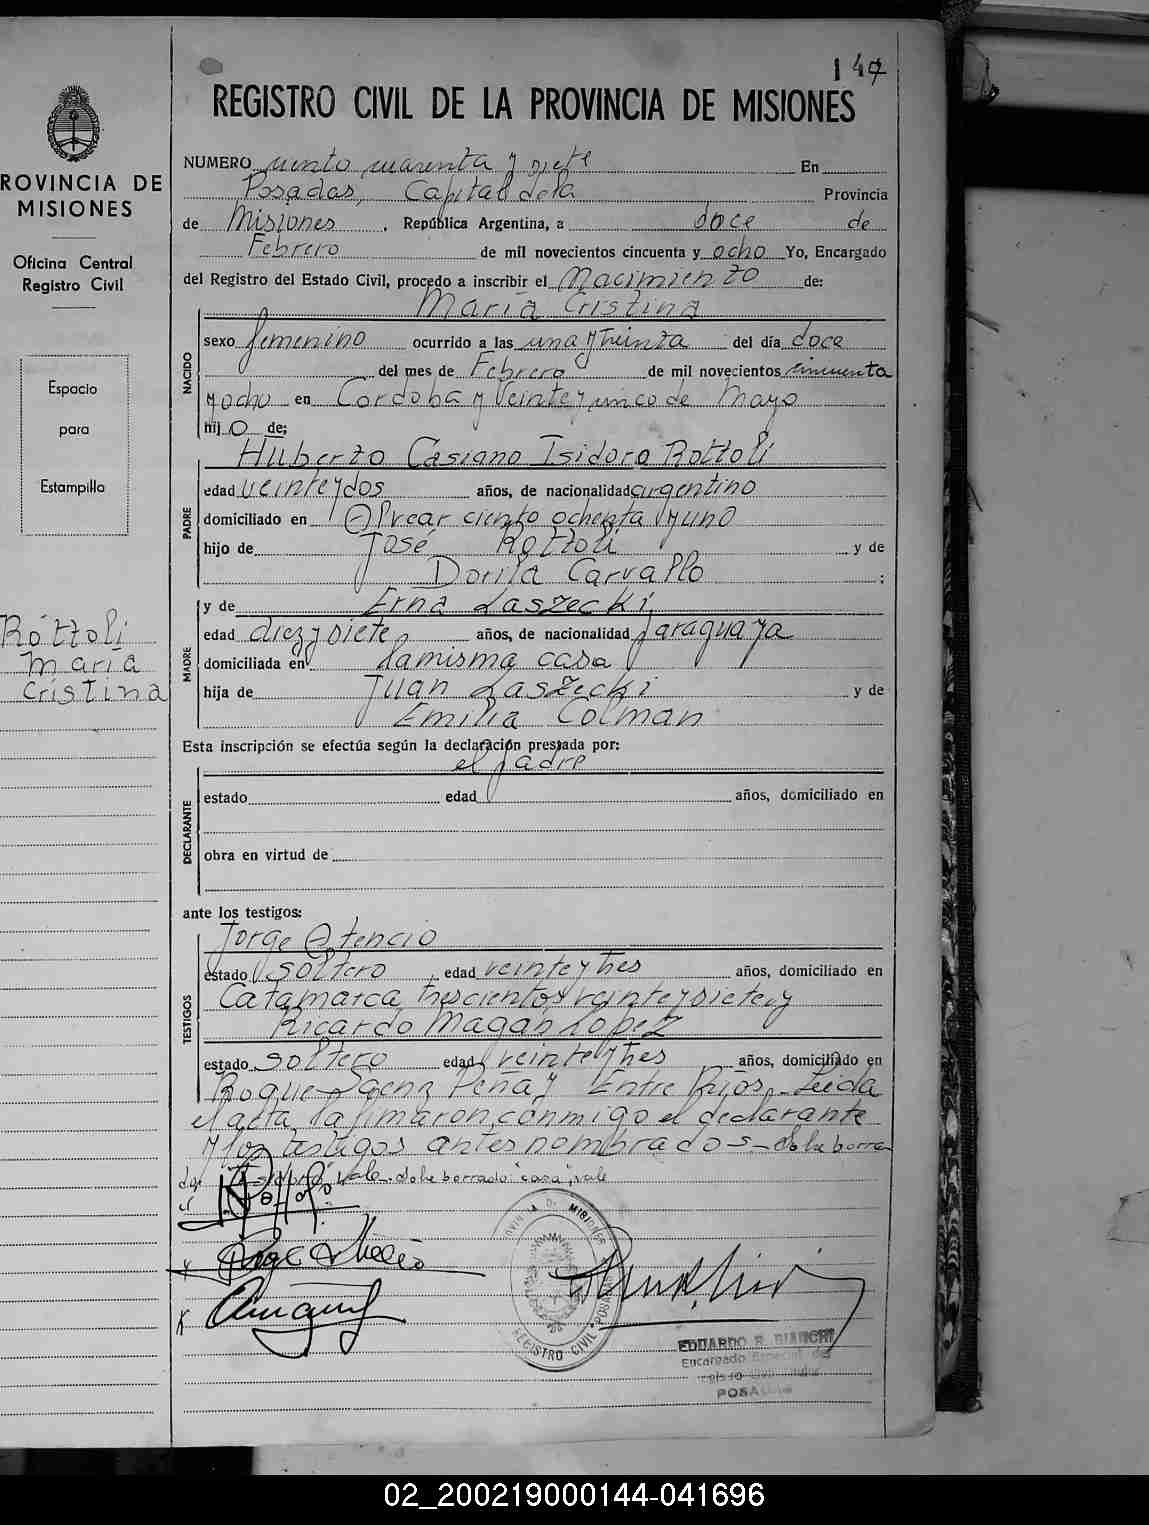 147
REGISTRO CIVIL DE LA PROVINCIA DE MISIONES
PROVINCIA DE
MISIONES
Oficina Central
Registro Civil
Espacio
para
Estampilla
Rottoli
Maria
Cristina
NUMERO ciento cuarenta y siete En
Posadas, Capital de la Provincia
de Misiones, República Argentina, a doce de
Febrero de mil novecientos cincuenta y ocho Yo, Encargado
del Registro del Estado Civil, procedo a inscribir el Nacimiento de:
María Cristina
NACIDO
sexo femenino ocurrido a las una y treinta del día doce
del mes de Febrero de mil novecientos cincuenta
y ocho en Córdoba y Veinte y cinco de Mayo
hijo de:
Huberto Casiano Isidoro Rottoli
PADRE
edad veinte y dos años, de nacionalidad argentino
domiciliado en Alvear ciento ochenta y uno
hijo de José Rottoli y de
Dorila Carvallo;
y de Erna Laszecki
MADRE
edad diez y siete años, de nacionalidad paraguaya
domiciliada en la misma casa
hija de Juan Laszecki y de
Emilia Colman
Esta inscripción se efectúa según la declaración prestada por:
el padre
DECLARANTE
estado edad años, domiciliado en
obra en virtud de
ante los testigos:
Jorge Atencio
TESTIGOS
estado soltero edad veinte y tres años, domiciliado en
Catamarca trescientos veinte y siete y
Ricardo Magán Lopez
estado soltero edad veinte y tres años, domiciliado en
Roque Saenz Peña y Entre Rios. Leida
el acta la firmaron conmigo el declarante
y los testigos antes nombrados.- sobre borra
do: vale. sobre borrado "casa", vale
PROVINCIA DE MISIONES
REGISTRO CIVIL POSADAS
EDUARDO R. BIANCHI
Encargado Especial del
Registro Civil
POSADAS
02_200219000144-041696